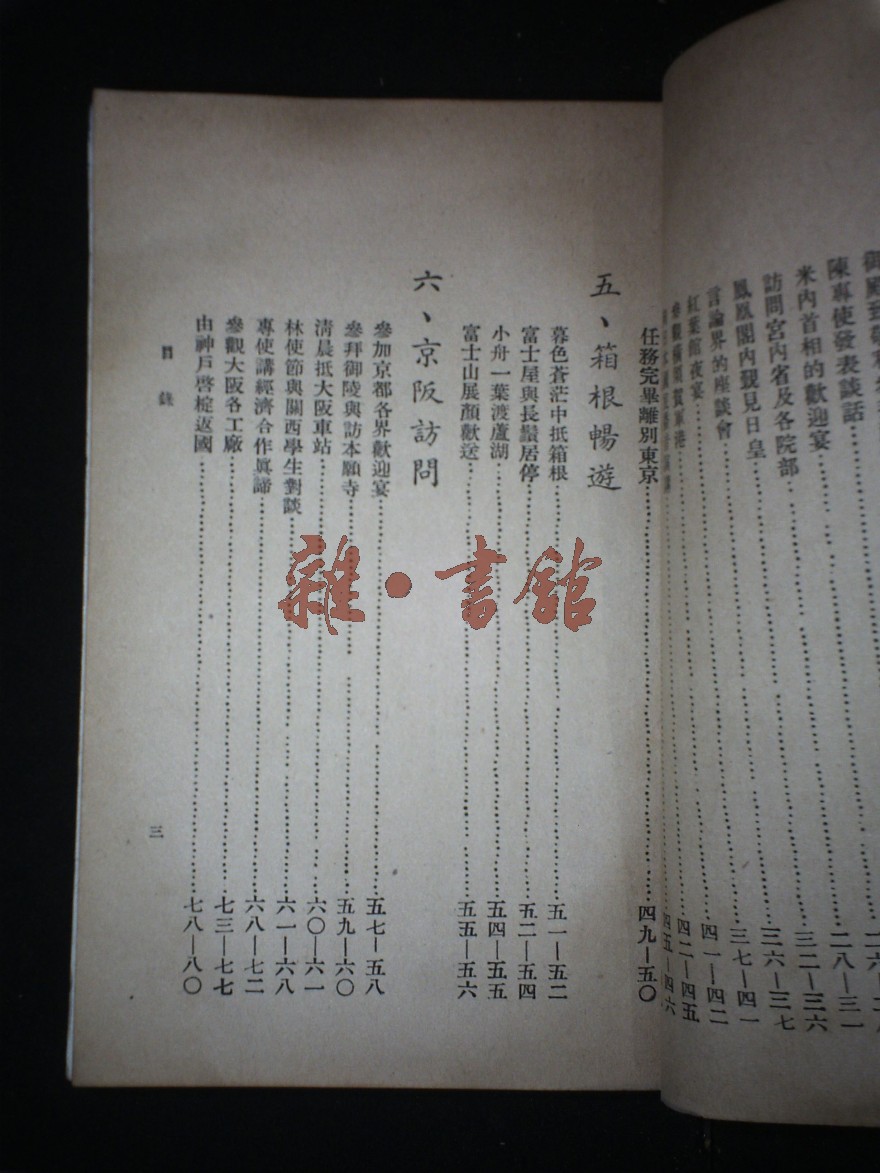 陳專使發表談話……二八—三一
米內首相的歡迎宴……三二—三六
訪問宮內省及各院部……三六—三七
鳳凰閣內覲見日皇……三七—四一
言論界的座談會……四一—四二
紅葉館夜宴……四二—四五
參觀橫須賀軍港……四五—四六
任務完畢離別東京……四九—五〇
五、箱根暢遊
暮色蒼茫中抵箱根……五一—五二
富士屋與長鬚居停……五二—五四
小舟一葉渡蘆湖……五四—五五
富士山展顏歡送……五五—五六
六、京阪訪問
參加京都各界歡迎宴……五七—五八
參拜御陵與訪本願寺……五九—六〇
清晨抵大阪車站……六〇—六一
林使節與關西學生對談……六一—六八
專使講經濟合作眞諦……六八—七二
參觀大阪各工廠……七三—七七
由神戶啓椗返國……七八—八〇
目錄
三
雜·書館